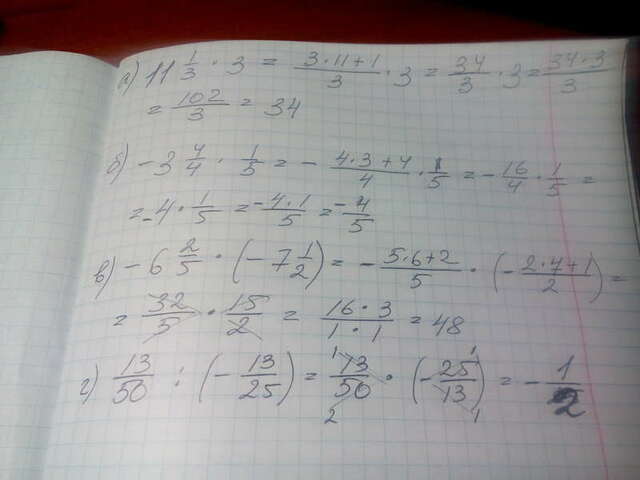 а) 11 1/3 · 3 = (3·11+1)/3 · 3 = 34/3 · 3 = (34·3)/3
= 102/3 = 34
б) -3 4/4 · 1/5 = - (4·3+4)/4 · 1/5 = - 16/4 · 1/5 =
= -4 · 1/5 = (-4·1)/5 = -4/5
в) -6 2/5 · (-7 1/2) = - (5·6+2)/5 · (- (2·7+1)/2) =
= 32/5 · 15/2 = (16·3)/(1·1) = 48
г) 13/50 : (- 13/25) = 13/50 · (- 25/13) = - 1/2